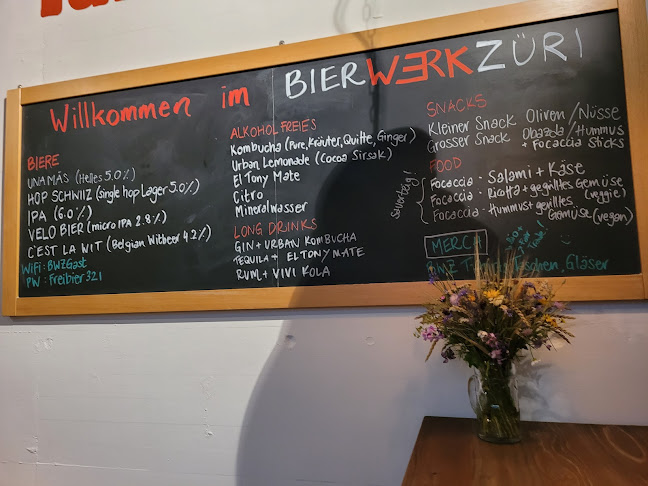 Willkommen im BIERWERKZÜRI
BIERE
UNA MÁS (Helles 5.0%)
HOP SCHNIIZ (single hop Lager 5.0%)
IPA (6.0%)
VELO BIER (micro IPA 2.8%)
C'EST LA WIT (Belgian Witbeer 4.2%)
WIFI: BWZGast
PW: Freibier321
ALKOHOLFREIES
Kombucha (Pure, Kräuter, Quitte, Ginger)
Urban Lemonade (Cocoa Sirsak)
El Tony Mate
Citro
Mineralwasser
LONG DRINKS
GIN + URBAN KOMBUCHA
TEQUILA + EL TONY MATE
RUM + VIVI KOLA
SNACKS
Kleiner Snack Oliven/Nüsse
Grosser Snack Obazda/Hummus
+ Focaccia Sticks
FOOD
Sauerteig!
Focaccia - Salami + Käse
Focaccia - Ricotta + gegrilltes Gemüse (veggie)
Focaccia - Hummus + grilles Gemüse (vegan)
MERCH
BWZ Taschen, Gläser